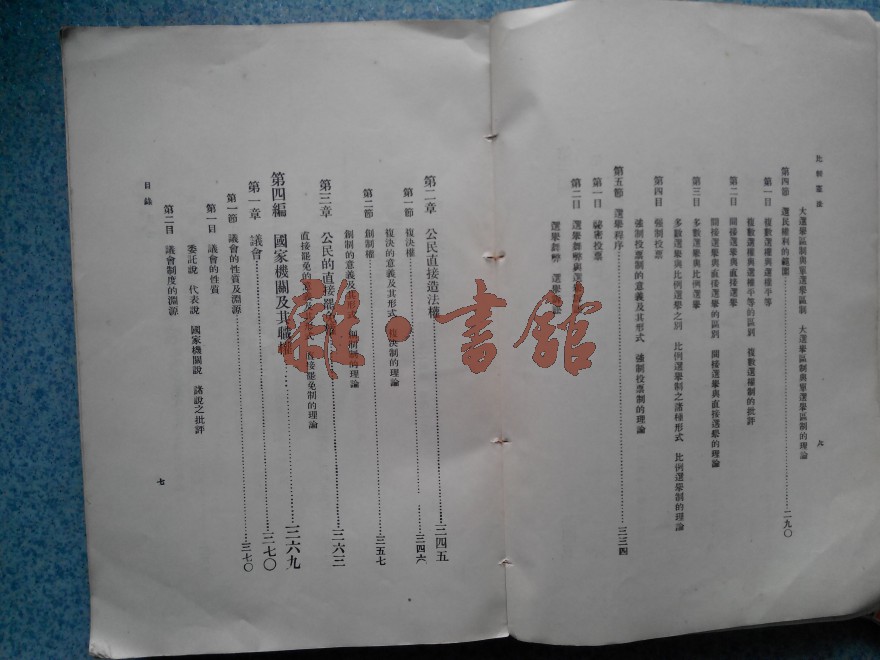 比較憲法
大選舉區制與單選舉區制 大選舉區制與單選舉區制的理論
第四節 選民權利的範圍……二九〇
第一目 複數選權與選權平等
複數選權與選權平等的區別 複數選權制的批評
第二目 間接選舉與直接選舉
間接選舉與直接選舉的區別 間接選舉與直接選舉的理論
第三目 多數選舉與比例選舉
多數選舉與比例選舉之別 比例選舉制之諸種形式 比例選舉制的理論
第四目 強制投票
強制投票制的意義及其形式 強制投票制的理論
第五節 選舉程序……三三四
第一目 祕密投票
第二目 選舉舞弊與選舉
選舉舞弊 選舉
六
第二章 公民直接造法權……三四五
第一節 複決權……三四六
複決的意義及其形式 複決制的理論
第二節 創制權……三五七
創制的意義及其形式 創制制的理論
第三章 公民的直接罷免權……三六三
直接罷免的 直接罷免制的理論
第四編 國家機關及其職權……三六九
第一章 議會……三七〇
第一節 議會的性質及淵源……三七〇
第一目 議會的性質
委託說 代表說 國家機關說 諸說之批評
第二目 議會制度的淵源
目錄
七
雜·書館